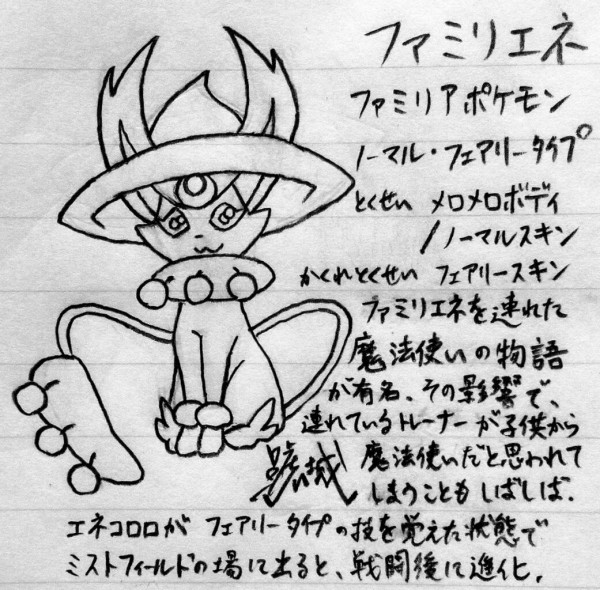 ファミリエネ
ファミリアポケモン
ノーマル・フェアリータイプ
とくせい メロメロボディ
/ノーマルスキン
かくれとくせい フェアリースキン
ファミリエネを連れた
魔法使いの物語
が有名、その影響で、
連れているトレーナーが子供から
魔法使いだと思われて
しまうこともしばしば.
エネコロロが フェアリータイプの技を覚えた状態で
ミストフィールドの場に出ると、戦闘後に進化.